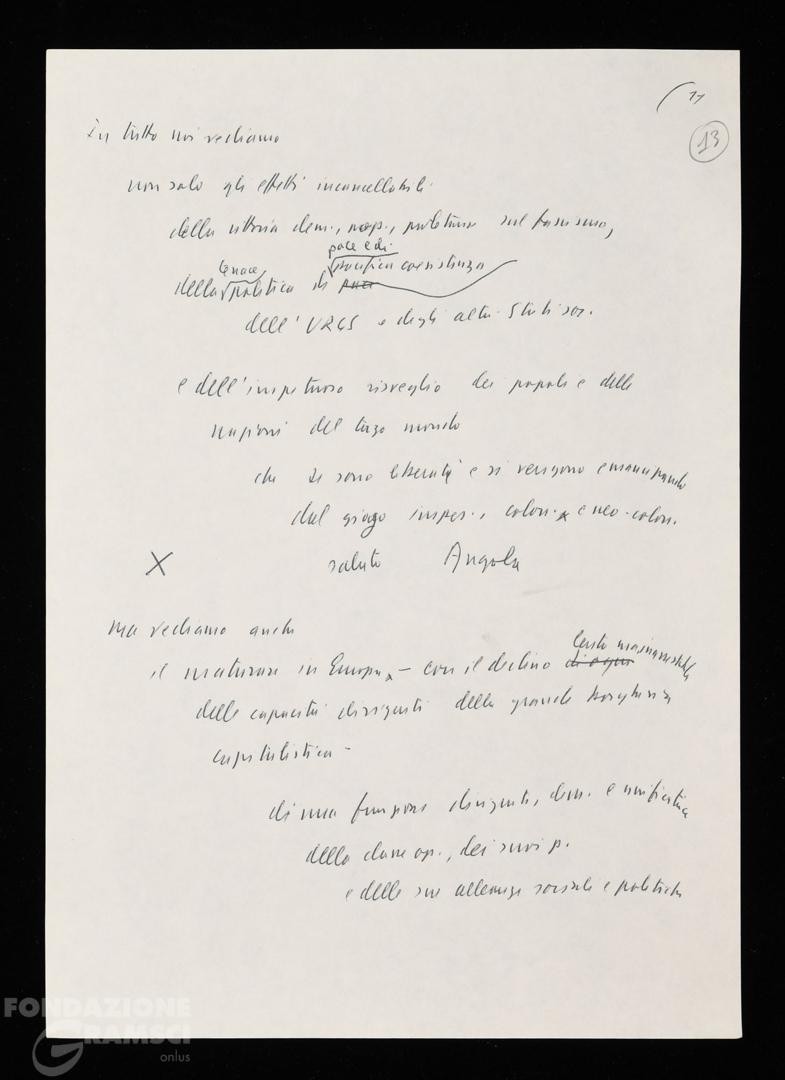 11
13
In tutto noi vediamo
non solo gli effetti incancellabili
della vittoria dem., pop., sul fascismo,
pace e di
tenace pacifica coesistenza
della politica di pace
dell'URSS e degli altri Stati soc.
e dell'impetuoso risveglio dei popoli e delle
nazioni del terzo mondo
che si sono liberati e si vengono emancipando
dal giogo imper., colon. e neo-colon.
X saluto Angola
Ma vediamo anche
lento
il maturare in Europa, – con il declino di ogni
delle capacità dirigenti della grande borghesia
capitalistica –
di una funzione dirigente, dem. e unificatrice
della classe op., dei suoi p.
e delle sue alleanze sociali e politiche
FONDAZIONE
GRAMSCI
onlus